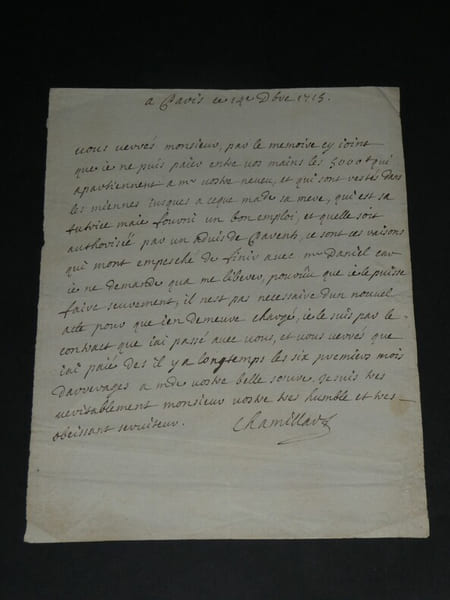 a Paris ce 14e Dbre 1715.
vous verrés monsieur, par le memoire cy joint
que ie ne puis paier entre vos mains les 5000 qui
apartiennent a mr vostre neveu, et qui sont restés dans
les miennes iusques a ceque made sa mere, qui est sa
tutrice maie fourni un bon emploi, et quelle soit
authorisée par un avis de Parents, ce sont ces raisons
qui mont empesché de finir avec mr Daniel car
ie ne demande qua me liberer, pourvu que ie le puisse
faire seurement, il nest pas necessaire dun nouvel
acte pour que ien demeure chargé, ie le suis par le
contract que iai passé avec vous, et vous verrés que
iai paié des il y a longtemps les six premiers mois
darrerages a mde vostre belle soeur, Je suis tres
veritablement monsieur vostre tres humble et tres
obeissant serviteur.
Chamillart